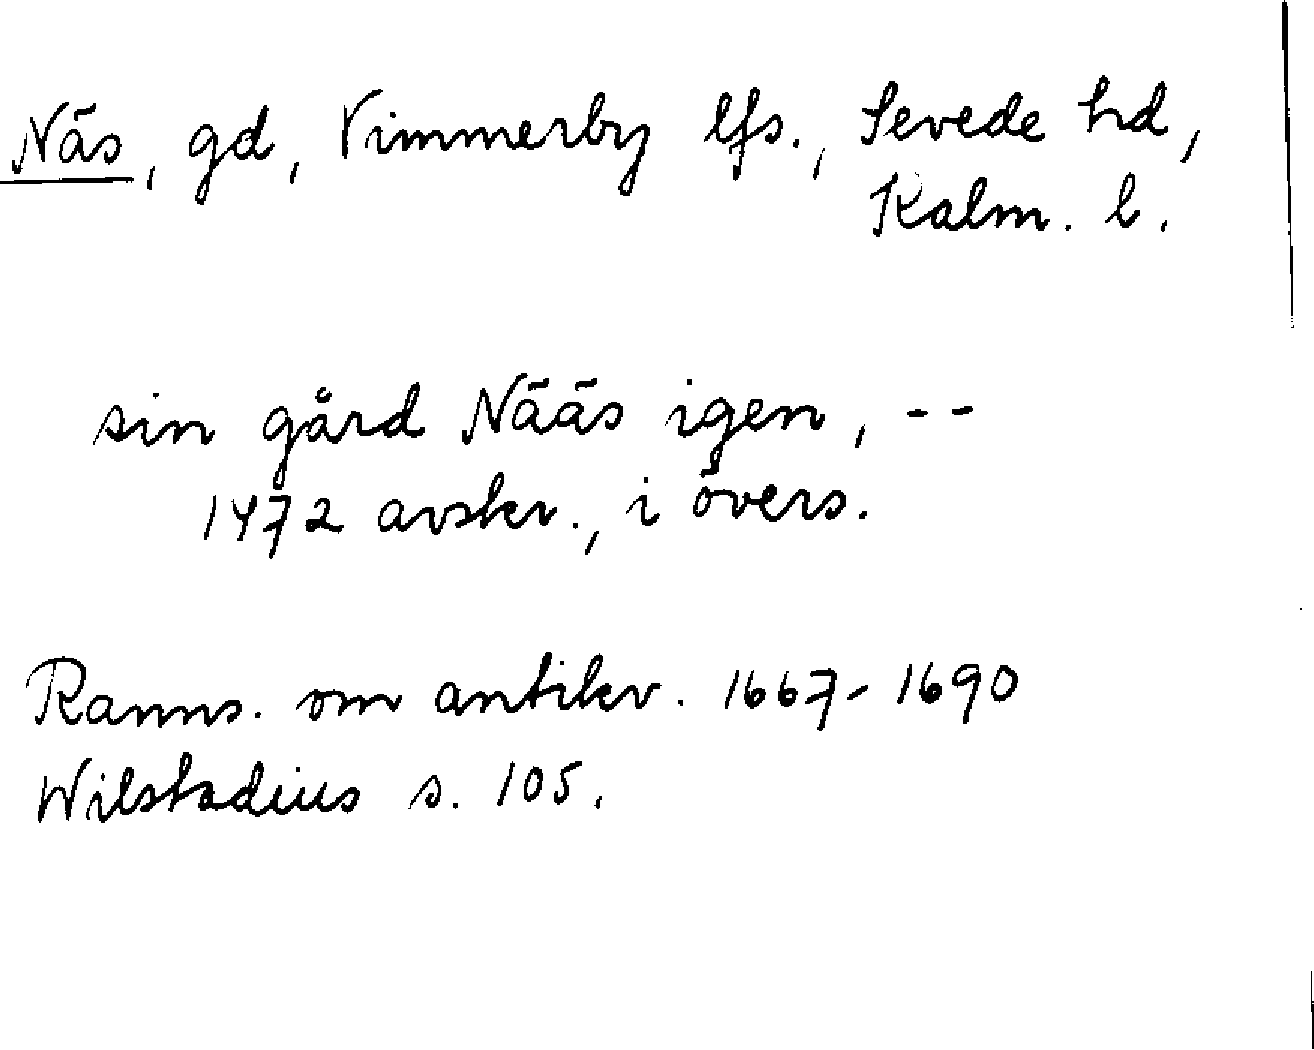 Näs, gd, Vimmerby lfs., Sevede hd,
Kalm. l.
sin gård Nääs igen, --
1472 avskr., i övers.
Ranns. om antikv. 1667-1690
Wilstadius s. 105.